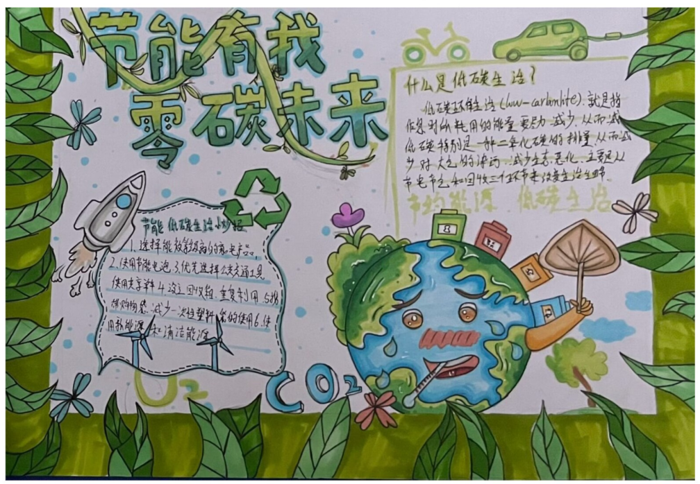 节能有我
零碳未来
什么是低碳生活？
低碳生活(low-carbonlife),就是指
减少,从而减
低碳特别是二氧化碳的排量,从而减
少对大气的污染,减少生态恶化,主要是从
节电节气和回收三个环节来改变生活细节
节约能源 低碳生活
节能低碳生活小妙招
1.选择能效等级高的家电产品.
2.使用节能电池 3.优先选择公共交通工具
使用共享单车 4.设立回收箱,重复利用 5.
购物袋.减少一次性塑料袋的使用 6.使
用 清洁能源
O2
CO2